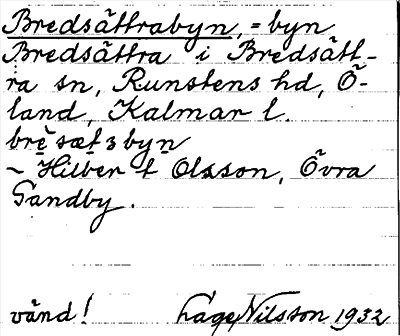 Bredsättrabyn, = byn
Bredsättra i Bredsätt-
ra sn, Runstens hd, Ö-
land, Kalmar l.
brèsæt3byn
~ Hilbert Olsson, Övra
Sandby.
vänd! Lage Nilsson 1932